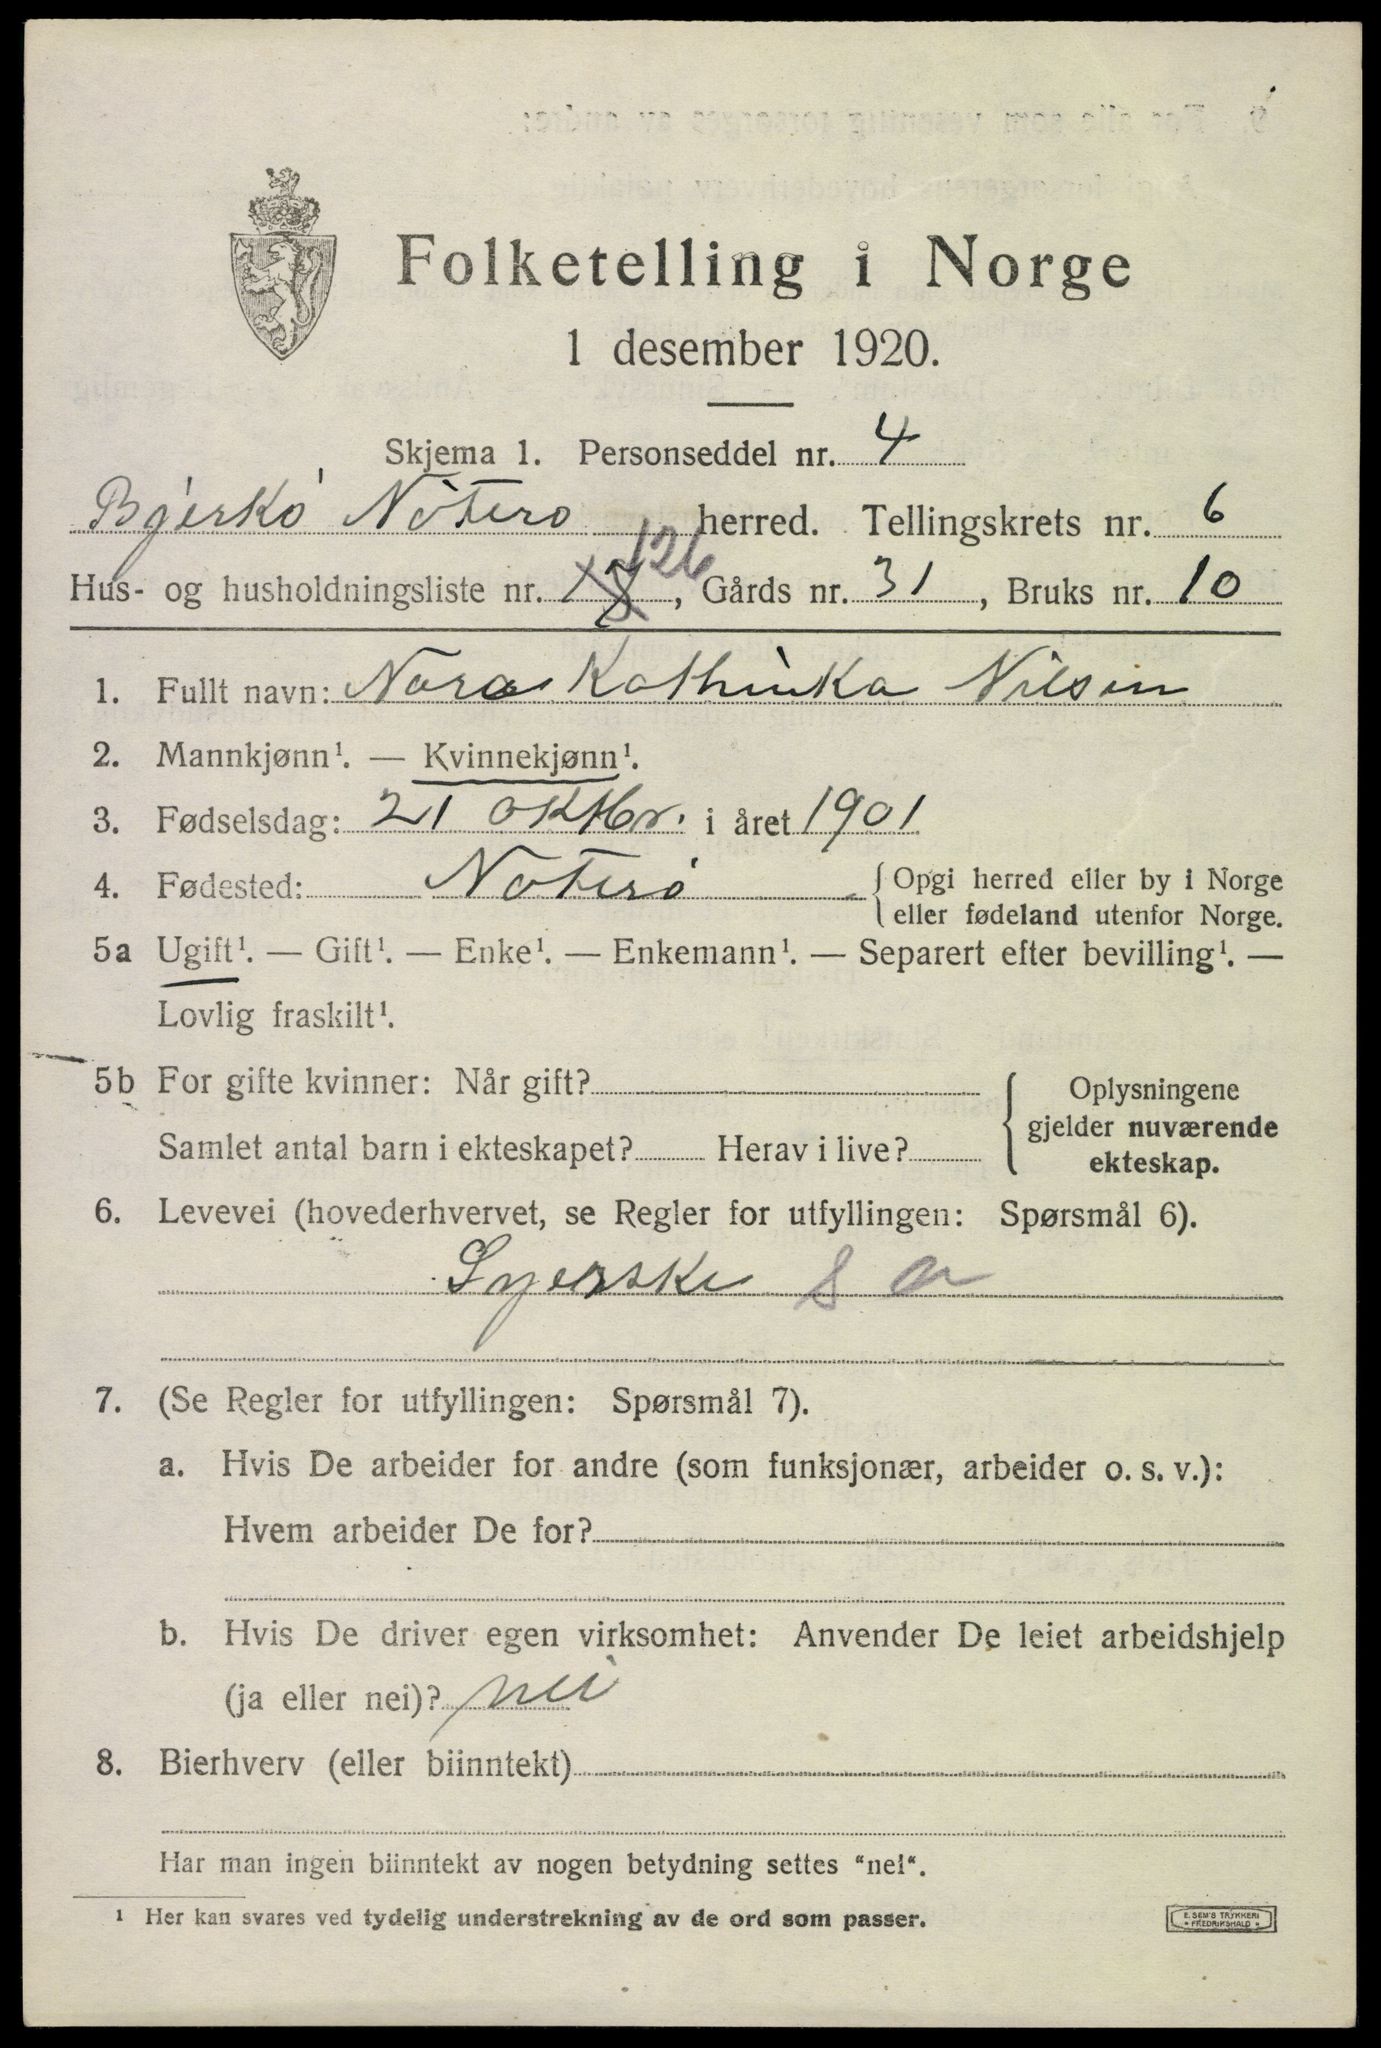 Folketelling i Norge
1 desember 1920.
Skjema 1. Personseddel nr. 4
Bjerkó Nóterø herred. Tellingskrets nr. 6
Hus- og husholdningsliste nr. 126, Gårds nr. 31, Bruks nr. 10
1. Fullt navn: Nora Kathinka Nilsen
2. Mannkjønn¹. — Kvinnekjønn¹.
3. Fødselsdag: 21 oktbr. i året 1901
4. Fødested: Noteró {Opgi herred eller by i Norge
eller fødeland utenfor Norge.
5a Ugift¹. — Gift¹. — Enke¹. — Enkemann¹. — Separert efter bevilling¹. —
Lovlig fraskilt¹.
5b For gifte kvinner: Når gift?
Samlet antal barn i ekteskapet? Herav i live?
Oplysningene
gjelder nuværende
ekteskap.
6. Levevei (hovederhvervet, se Regler for utfyllingen: Spørsmål 6).
Syerske s a
7. (Se Regler for utfyllingen: Spørsmål 7).
a. Hvis De arbeider for andre (som funksjonær, arbeider o. s. v.):
Hvem arbeider De for?
b. Hvis De driver egen virksomhet: Anvender De leiet arbeidshjelp
(ja eller nei)? nei
8. Bierhverv (eller biinntekt)
Har man ingen biinntekt av nogen betydning settes "nei".
¹ Her kan svares ved tydelig understrekning av de ord som passer.
E. SEM'S TRYKKERI
FREDRIKSHALD